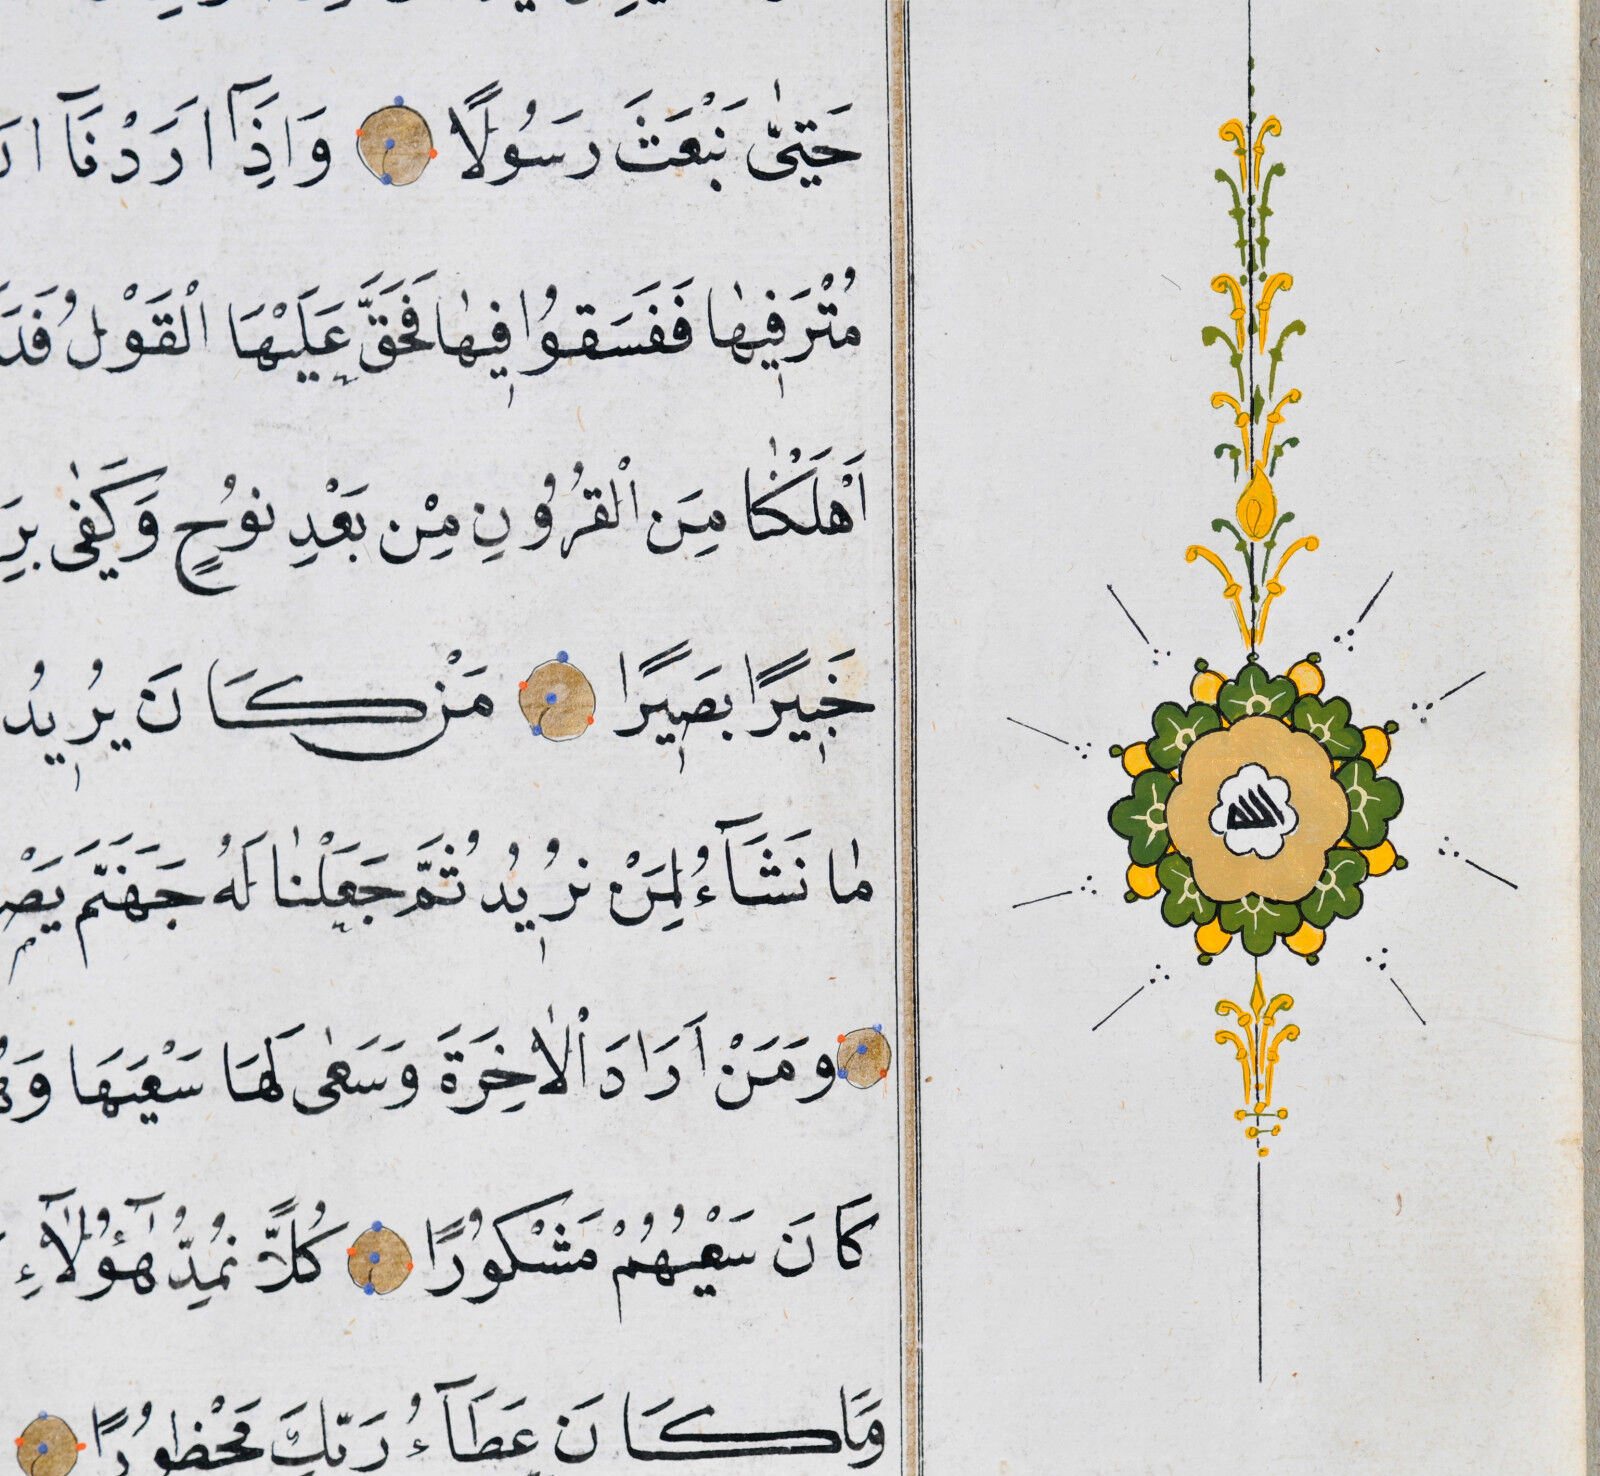 حَتّٰى نَبْعَثَ رَسُولًا وَاِذَٓا اَرَدْنَٓا
مُتْرَفٖيهٰا فَفَسَقُوا فٖيهٰا فَحَقَّ عَلَيْهَا الْقَوْلُ
اَهْلَكْنٰا مِنَ الْقُرُونِ مِنْ بَعْدِ نُوحٍ وَكَفٰى
خَبٖيرًا بَصٖيرًا مَنْ كَانَ يُرٖيدُ
مٰا نَشَٓاءُ لِمَنْ نُرٖيدُ ثُمَّ جَعَلْنٰا لَهُ جَهَنَّمَ
وَمَنْ اَرَادَ الْاٰخِرَةَ وَسَعٰى لَهَا سَعْيَهَا
كَانَ سَعْيُهُمْ مَشْكُورًا كُلًّا نُمِدُّ هٰٓؤُلَٓاءِ
وَمَا كَانَ عَطَٓاءُ رَبِّكَ مَحْظُورًا
الله